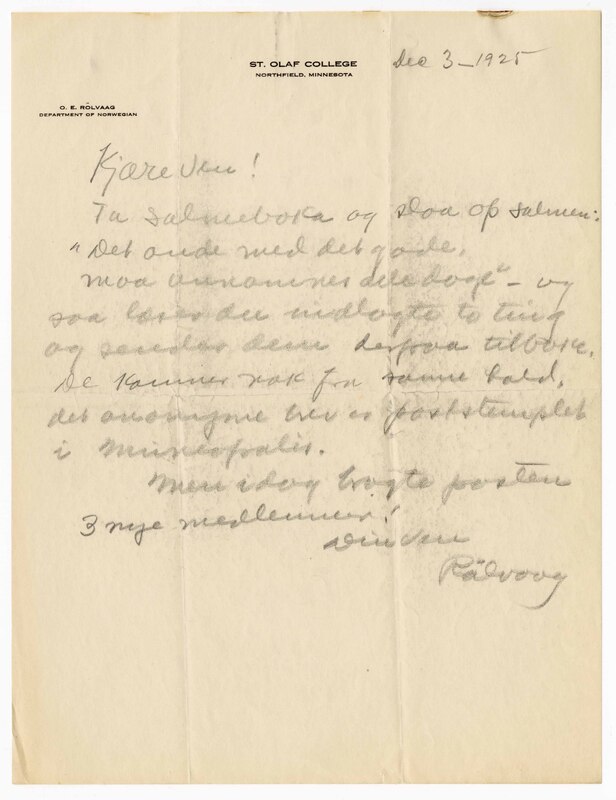 ST. OLAF COLLEGE
NORTHFIELD, MINNESOTA
Dec 3 – 1925
O. E. RÖLVAAG
DEPARTMENT OF NORWEGIAN
Kjære Ven!
Ta Salmeboka og slaa op salmen:
"Det onde med det gode,
maa annammes alle dage" – og
saa læser du indlagte to ting
og sender dem derpaa tilbake.
De kommer nok fra samme hold,
det anonyme brev er poststemplet
i Mineapolis.
Men idag bragte posten
3 nye medlemmer!
Din Ven
Rölvaag